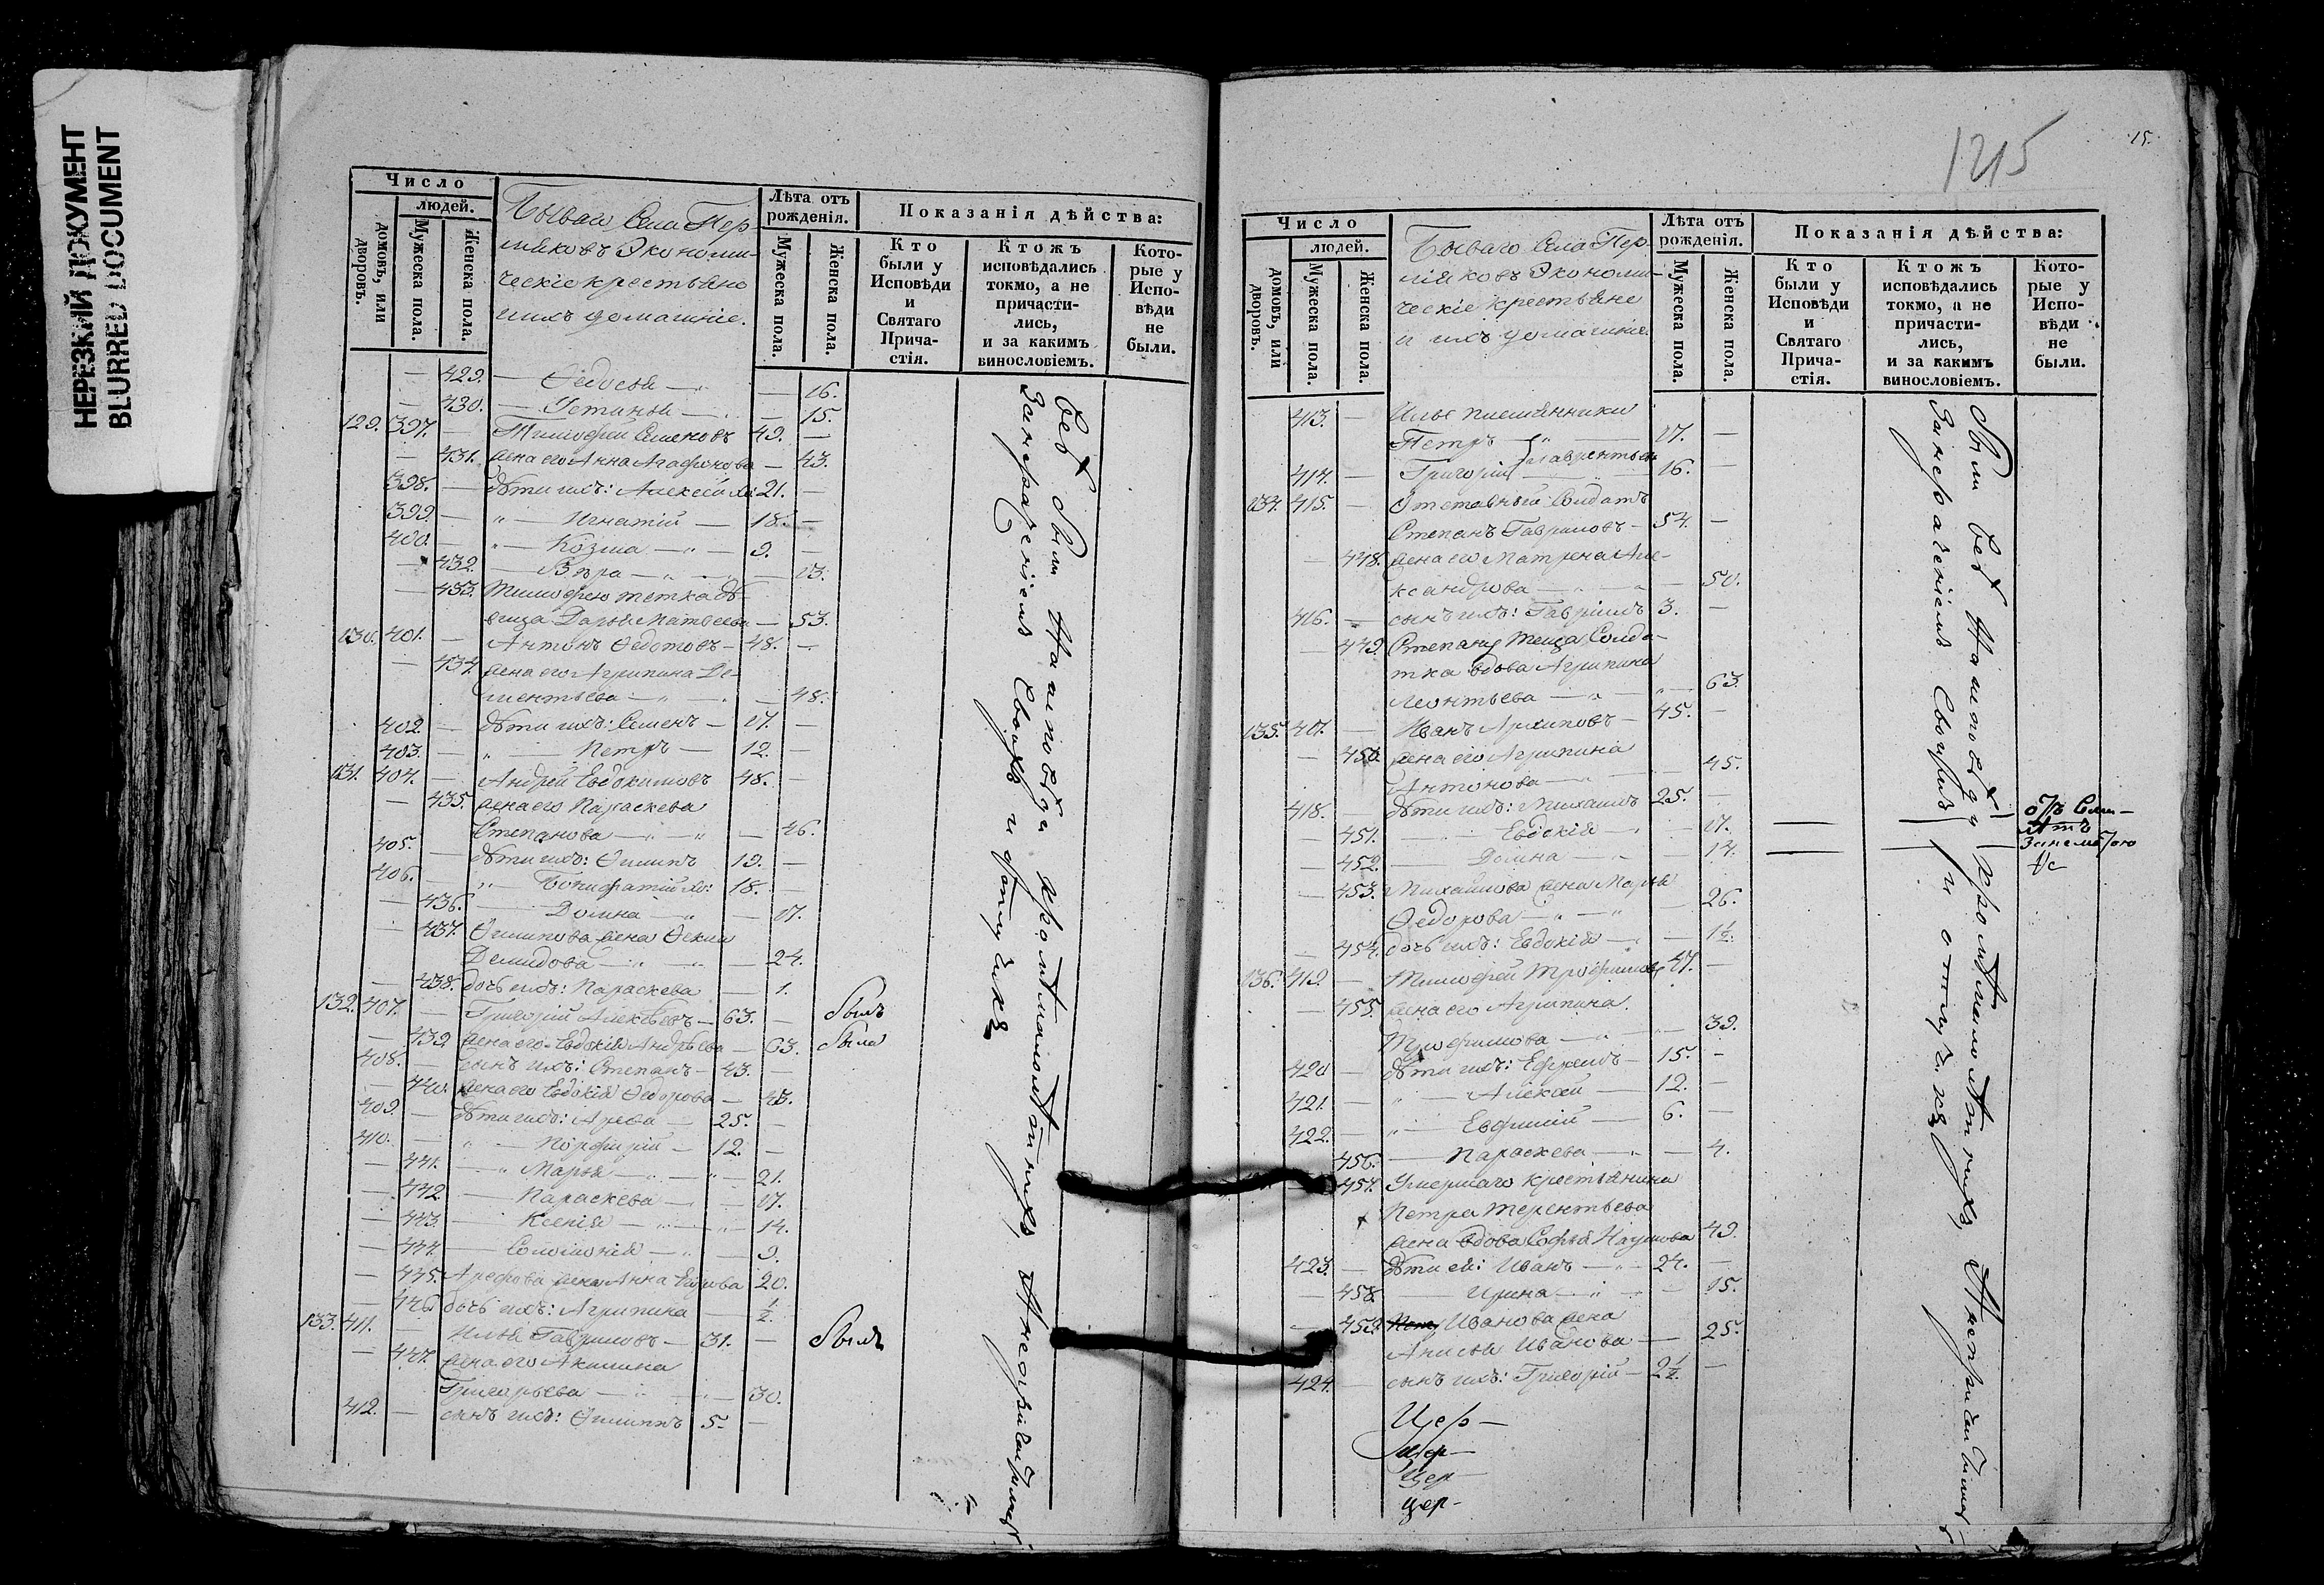 НЕРЕЗКИЙ ДОКУМЕНТ
BLURRED DOCUMENT
Число
людей.
домовъ, или дворовъ.
Мужеска пола.
Женска пола.
Бываго Села Пер
мiяковъ Экономи-
ческiе крестьяне
и ихъ домашнiе.
Лѣта отъ рожденiя.
Мужеска пола.
Женска пола.
Показанiя дѣйства:
Кто были у Исповѣди и Святаго Прича-стiя.
Ктожъ исповѣдались токмо, а не причасти-лись, и за какимъ винословiемъ.
Кото-рые у Испо-вѣди не были.
— 429. — Ѳедосья — " — 16.
— 430. — Устинья — — 15.
129. 397. — Тимофей Семеновъ 49. —
— 431. жена его Анна Агафонова — 43.
398. — дѣти ихъ: Алексей 21. —
399. — " — Игнатiй — 18. —
400. — " — Козма — " — 9. —
— 432. — Вѣра — " — 13.
— 433. Тимофею тетка дѣ-
вица Дарья Матвеева — 53.
130. 401. — Антонъ Ѳедотовъ — 48. —
— 434. жена его Агрипина Де-
ментьева — " — 48.
402. — дѣти ихъ: Семенъ — 17. —
403. — " — Петръ — 12. —
131. 404. — Андрей Евдокимовъ 48. —
— 435. жена его Параскева
Степанова — " — " — 46.
405. — дѣти ихъ: Филипъ 19. —
406. — " — Вонифатiй 18. —
— 436. — Домна — " — 17.
— 437. Филипова жена Ѳекла
Демидова — " — 24.
— 438. дочь ихъ: Параскева — 1.
132. 407. — Григорiй Алексѣевъ — 63. — былъ
— 439 жена его Евдокiя Андрѣева — 63. была
408. — сынъ ихъ: Степанъ — 43. —
— 440. жена его Евдокiя Ѳедорова — 43.
409. — дѣти ихъ: Арефа — 25. —
410. — " — Порфирiй — 12. —
— 441. — " Марья — " — 21.
— 442 — Параскева — — 17.
— 443. — Ксенiя — " — 14.
— 444. — Соломонiя — " — 9.
— 445. Арефова жена Анна 20.
— 446. дочь ихъ: Агрипина — 1/2.
133. 411. — Илья Гавриловъ — 31. — былъ
— 447. жена его Акилина
Григорьева — " — 30.
412. — сынъ ихъ: Филиппъ 5. —
всѣ были на исповѣди кромѣ малолѣтнихъ,
Занераченiемъ своихъ и отлучикъ
1215
15.
Число
людей.
домовъ, или дворовъ.
Мужеска пола.
Женска пола.
Бываго Села Пер-
мiяковъ Экономи-
ческiе крестьяне
и ихъ домашнiе
Лѣта отъ рожденiя.
Мужеска пола.
Женска пола.
Показанiя дѣйства:
Кто были у Исповѣди и Святаго Прича-стiя.
Ктожъ исповѣдались токмо, а не причасти-лись, и за какимъ винословiемъ.
Кото-рые у Испо-вѣди не были.
413. — Ильѣ племянники
Петръ — " — 17. —
Лаврентьевы
414. — Григорiй — 16. —
134. 415. — Отставный Солдатъ
Степанъ Гавриловъ — 54. —
— 448. жена его Матрена Але-
ксандрова — " — 50.
416. — сынъ ихъ: Гаврiилъ 3. —
— 449. Степану теща Солда-
тка вдова Агрипина
Леонтьева — " — 63.
135. 417. — Иванъ Архиповъ — 45. —
— 450. жена его Агрипина
Антонова — " — 45.
418. — дѣти ихъ: Михаилъ 25. —
— 451. — Евдокiя — — 17. —
— 452. — Домна — " — 14. —
— 453. Михайлова жена Марья
Ѳедорова — " — " — 26.
— 454. дочь ихъ: Евдокiя — " — 1 1/2.
136. 419. — Тимофей Трофимовъ 47. —
— 455. жена его Агрипина
Трофимова — " — 39.
420 — дѣти ихъ: Ефремъ — 15. —
421. — " — Алексей — 12. —
422. — " — Евфимiй — 6. —
456. — Параскева — " — 4.
457. Умершаго крестьянина
Петра Терентьева
жена вдова Софья Наумова 49.
423. — дѣти ей: Иванъ — " — 24. —
— 458. — Ирина — " — 15.
— 459. Иванова жена
Анисья Иванова — 25.
424. — сынъ ихъ: Григорiй — 2 1/2. —
были всѣ на исповѣди кромѣ малолѣтнихъ,
Занераченiемъ своимъ и отлучикъ
Цер —
Цер —
Цер —
цер —